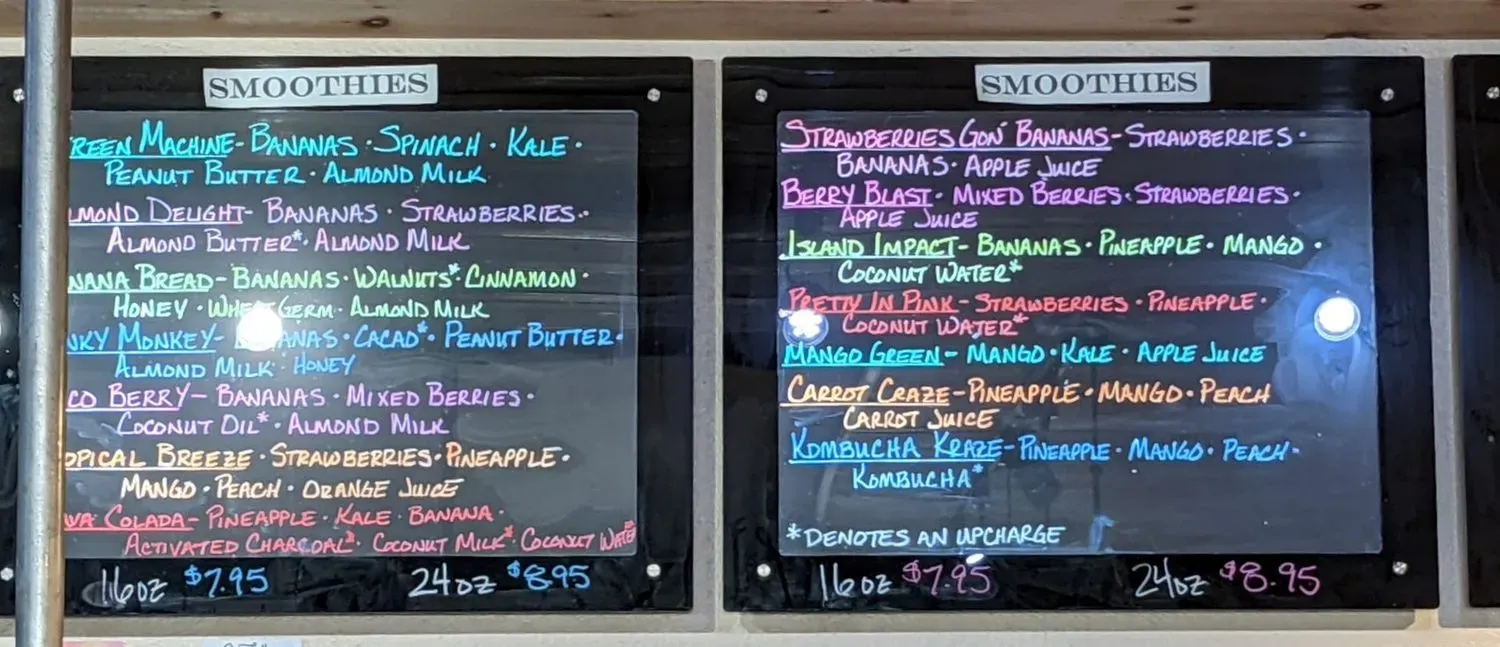 SMOOTHIES
REEN MACHINE- BANANAS · SPINACH · KALE ·
PEANUT BUTTER · ALMOND MILK
LMOND DELIGHT- BANANAS · STRAWBERRIES ·
ALMOND BUTTER* · ALMOND MILK
NANA BREAD- BANANAS · WALNUTS* · CINNAMON ·
HONEY · WHEAT GERM · ALMOND MILK
NKY MONKEY- ANAS · CACAO* · PEANUT BUTTER ·
ALMOND MILK · HONEY
CO BERRY- BANANAS · MIXED BERRIES ·
COCONUT OIL* · ALMOND MILK
OPICAL BREEZE · STRAWBERRIES · PINEAPPLE ·
MANGO · PEACH · ORANGE JUICE
AVA COLADA- PINEAPPLE · KALE · BANANA ·
ACTIVATED CHARCOAL* · COCONUT MILK* · COCONUT WATER
16 OZ $7.95 24 OZ $8.95
SMOOTHIES
STRAWBERRIES GON' BANANAS- STRAWBERRIES ·
BANANAS · APPLE JUICE
BERRY BLAST · MIXED BERRIES · STRAWBERRIES ·
APPLE JUICE
ISLAND IMPACT- BANANAS · PINEAPPLE · MANGO ·
COCONUT WATER*
PRETTY IN PINK- STRAWBERRIES · PINEAPPLE ·
COCONUT WATER*
MANGO GREEN- MANGO · KALE · APPLE JUICE
CARROT CRAZE- PINEAPPLE · MANGO · PEACH
CARROT JUICE
KOMBUCHA KRAZE- PINEAPPLE · MANGO · PEACH ·
KOMBUCHA*
*DENOTES AN UPCHARGE
16 OZ $7.95 24 OZ $8.95